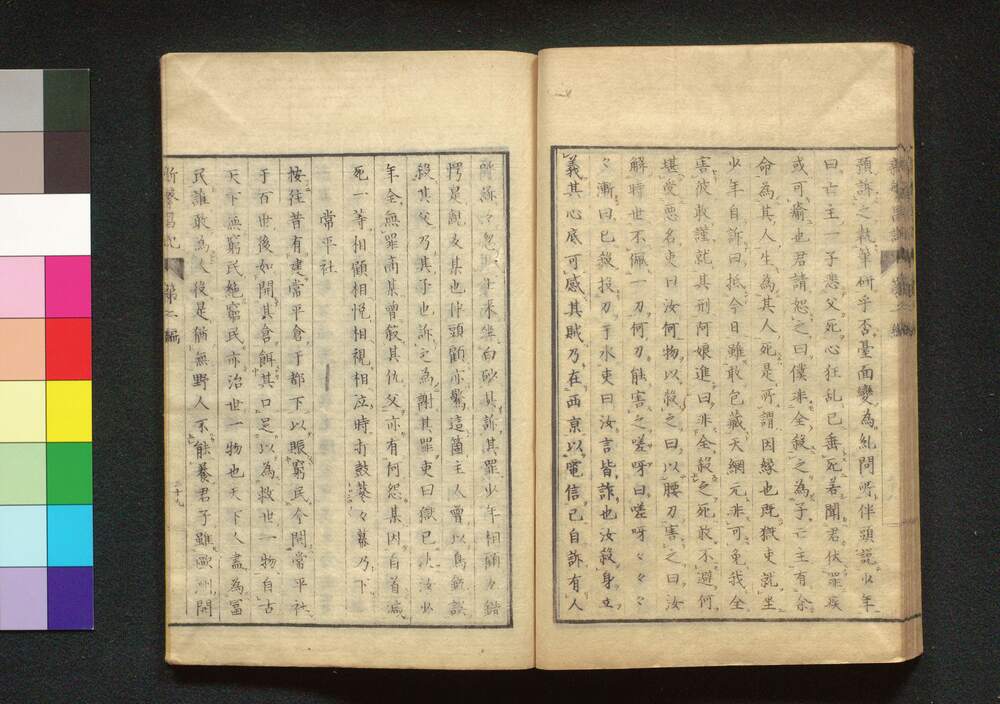 預訴之執筆研乎否臺面變為糺問所伴頭説少年
曰亡主一子悲父死心狂乱已垂死若聞君伏罪疾
或可癒也君請恕之曰僕非全殺之為子亡主有余
命為其人生為其人死是所謂因縁也既獄吏就坐
少年自訴曰抵今日雖敢包藏天網元非可免我全
害彼敢謹就其刑阿娘進曰非全殺之死敢不避何
堪受悪名吏曰汝何物以殺之曰以腰刀害之曰汝
解時世不佩一刀何刀能害之嗟呀曰嗟呀々々
々漸曰已後投刀于水吏曰汝言皆詐也汝殺身立
義其心底可感其賊乃在西京以電信已自訴有人
主来坐白砂具訴其罪少年相顧々錯
愕是親友某也伴頭顧亦驚這箇主人曽以鳥銃誤
殺其父乃其子也訴之為謝其罪吏曰獄已決汝少
年全無罪商某曽殺其仇父亦有何怨某因自首減
死一等相顧相悦相視相泣時打鼓鼕々幕乃下
常平社
按往昔有建常平倉于都下以賑窮民今聞常平社
于百世後如開其倉餌其口足以為救世一物自古
天下無窮民絶窮民亦治世一物也天下人盡為冨
民誰敢為人役是猶無野人不能養君子雖歐洲開
第二編
二十九